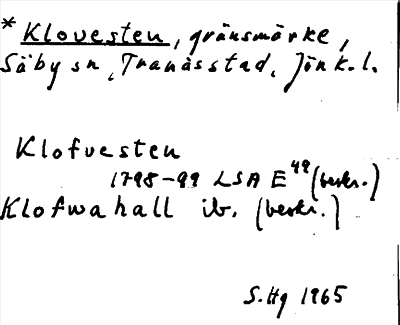 * Klovesten, gränsmärke,
Säby sn, Tranås stad, Jönk. l.
Klofvesten
1798-99 LSA E 49 (beskr.)
Klofwahall ib. (beskr.)
S. Hg 1965